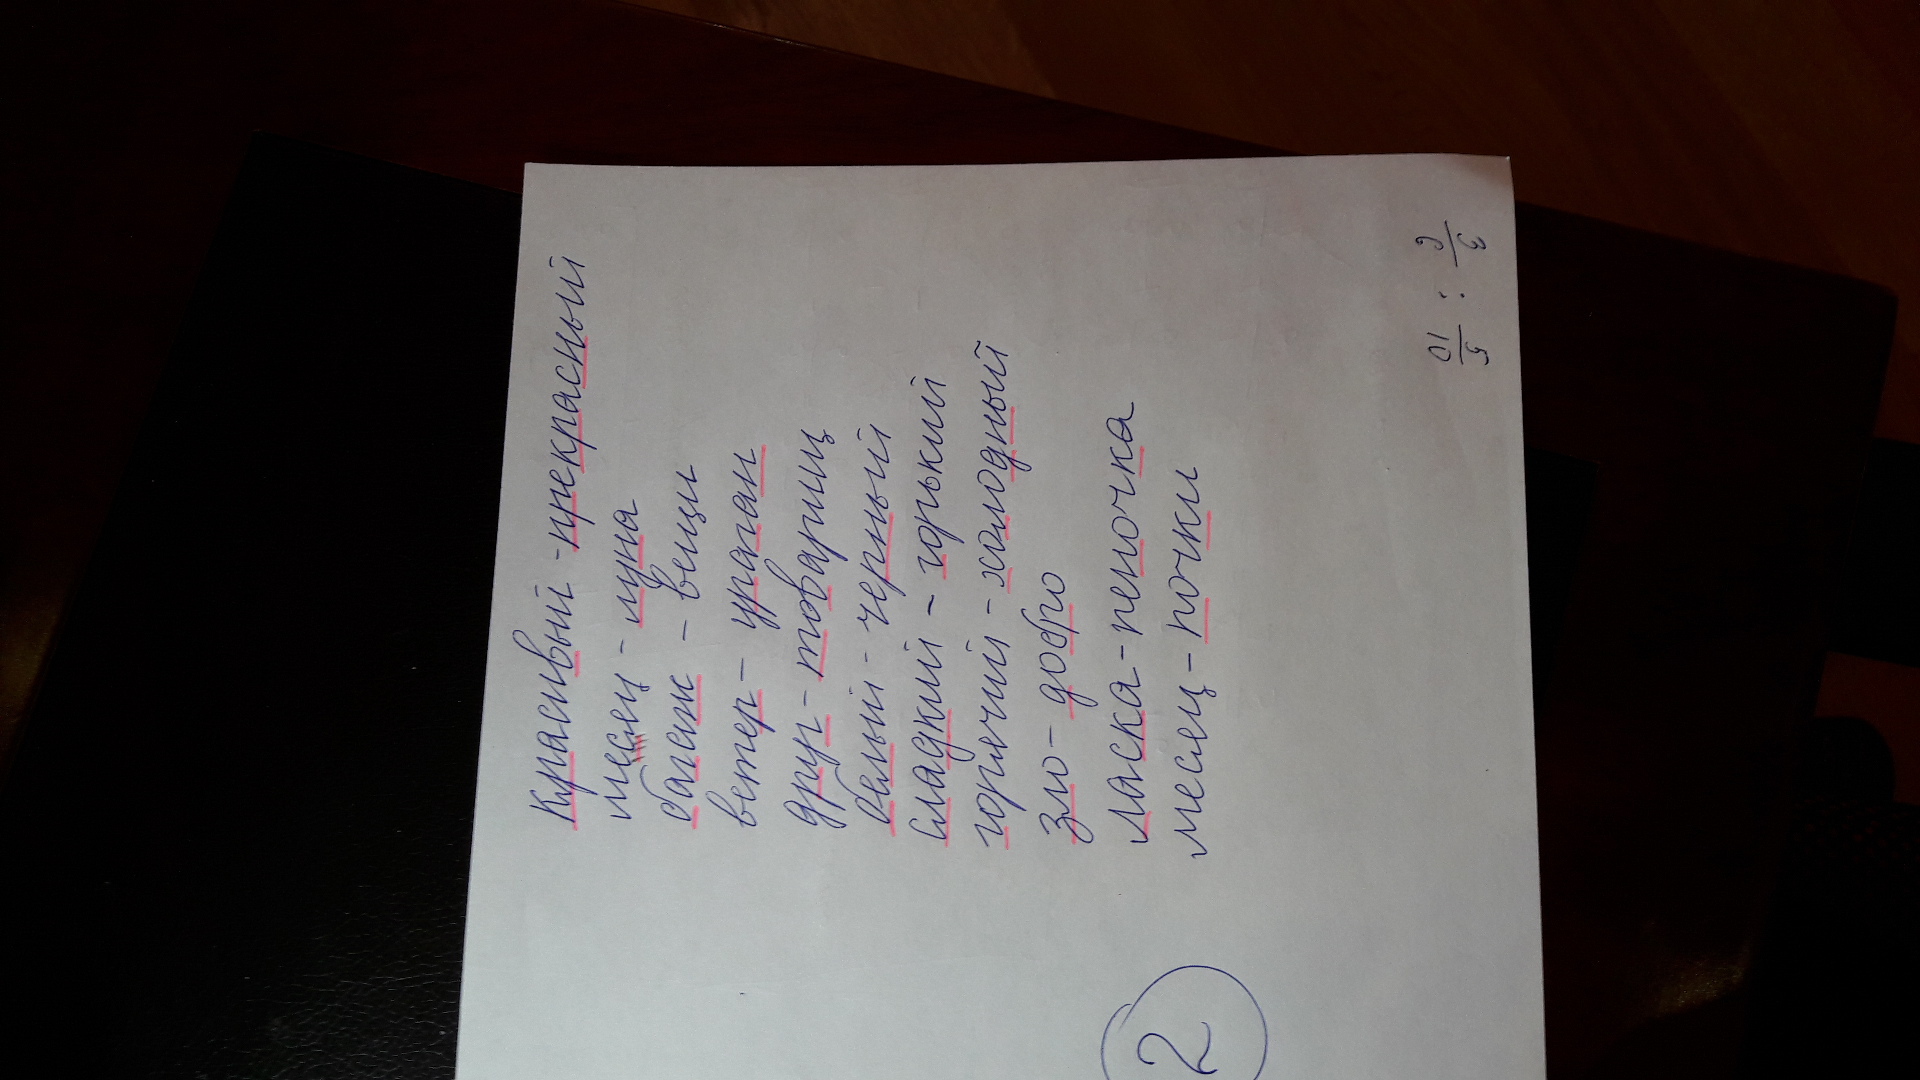 Красивый - прекрасный
месяц - луна
багаж - вещи
ветер - ураган
друг - товарищ
белый - черный
Сладкий - горький
горячий - холодный
Зло - добро
Ласка - пеночка
месяц - почки
2